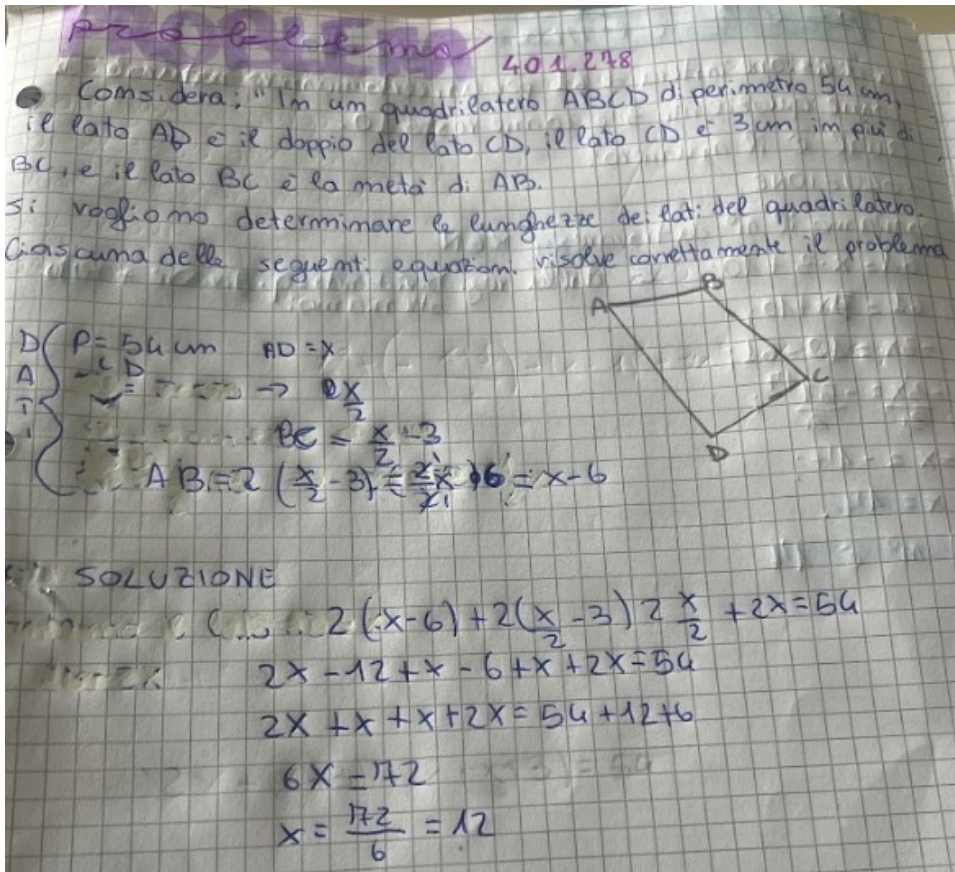 Problema
401.278
Comsidera: "Im um quadrilatero ABCD di perimetro 54 cm,
il lato AD è il doppio del lato CD, il lato CD è 3 cm im più di
BC, e il lato BC è la metà di AB.
Si vogliomo determimare le lumghezze dei lati del quadrilatero.
Ciascuma delle seguemti equazioni risolve correttamente il problema
A B
C
D
DATI
P = 54 cm AD = x
CD
= → x/2
BC = x/2 - 3
AB = 2 (x/2 - 3) = 2x/2 - 6 = x-6
SOLUZIONE
2(x-6) + 2(x/2 - 3) 2 x/2 + 2x = 54
2x - 12 + x - 6 + x + 2x = 54
2x + x + x + 2x = 54 + 12 + 6
6x = 72
x = 72/6 = 12